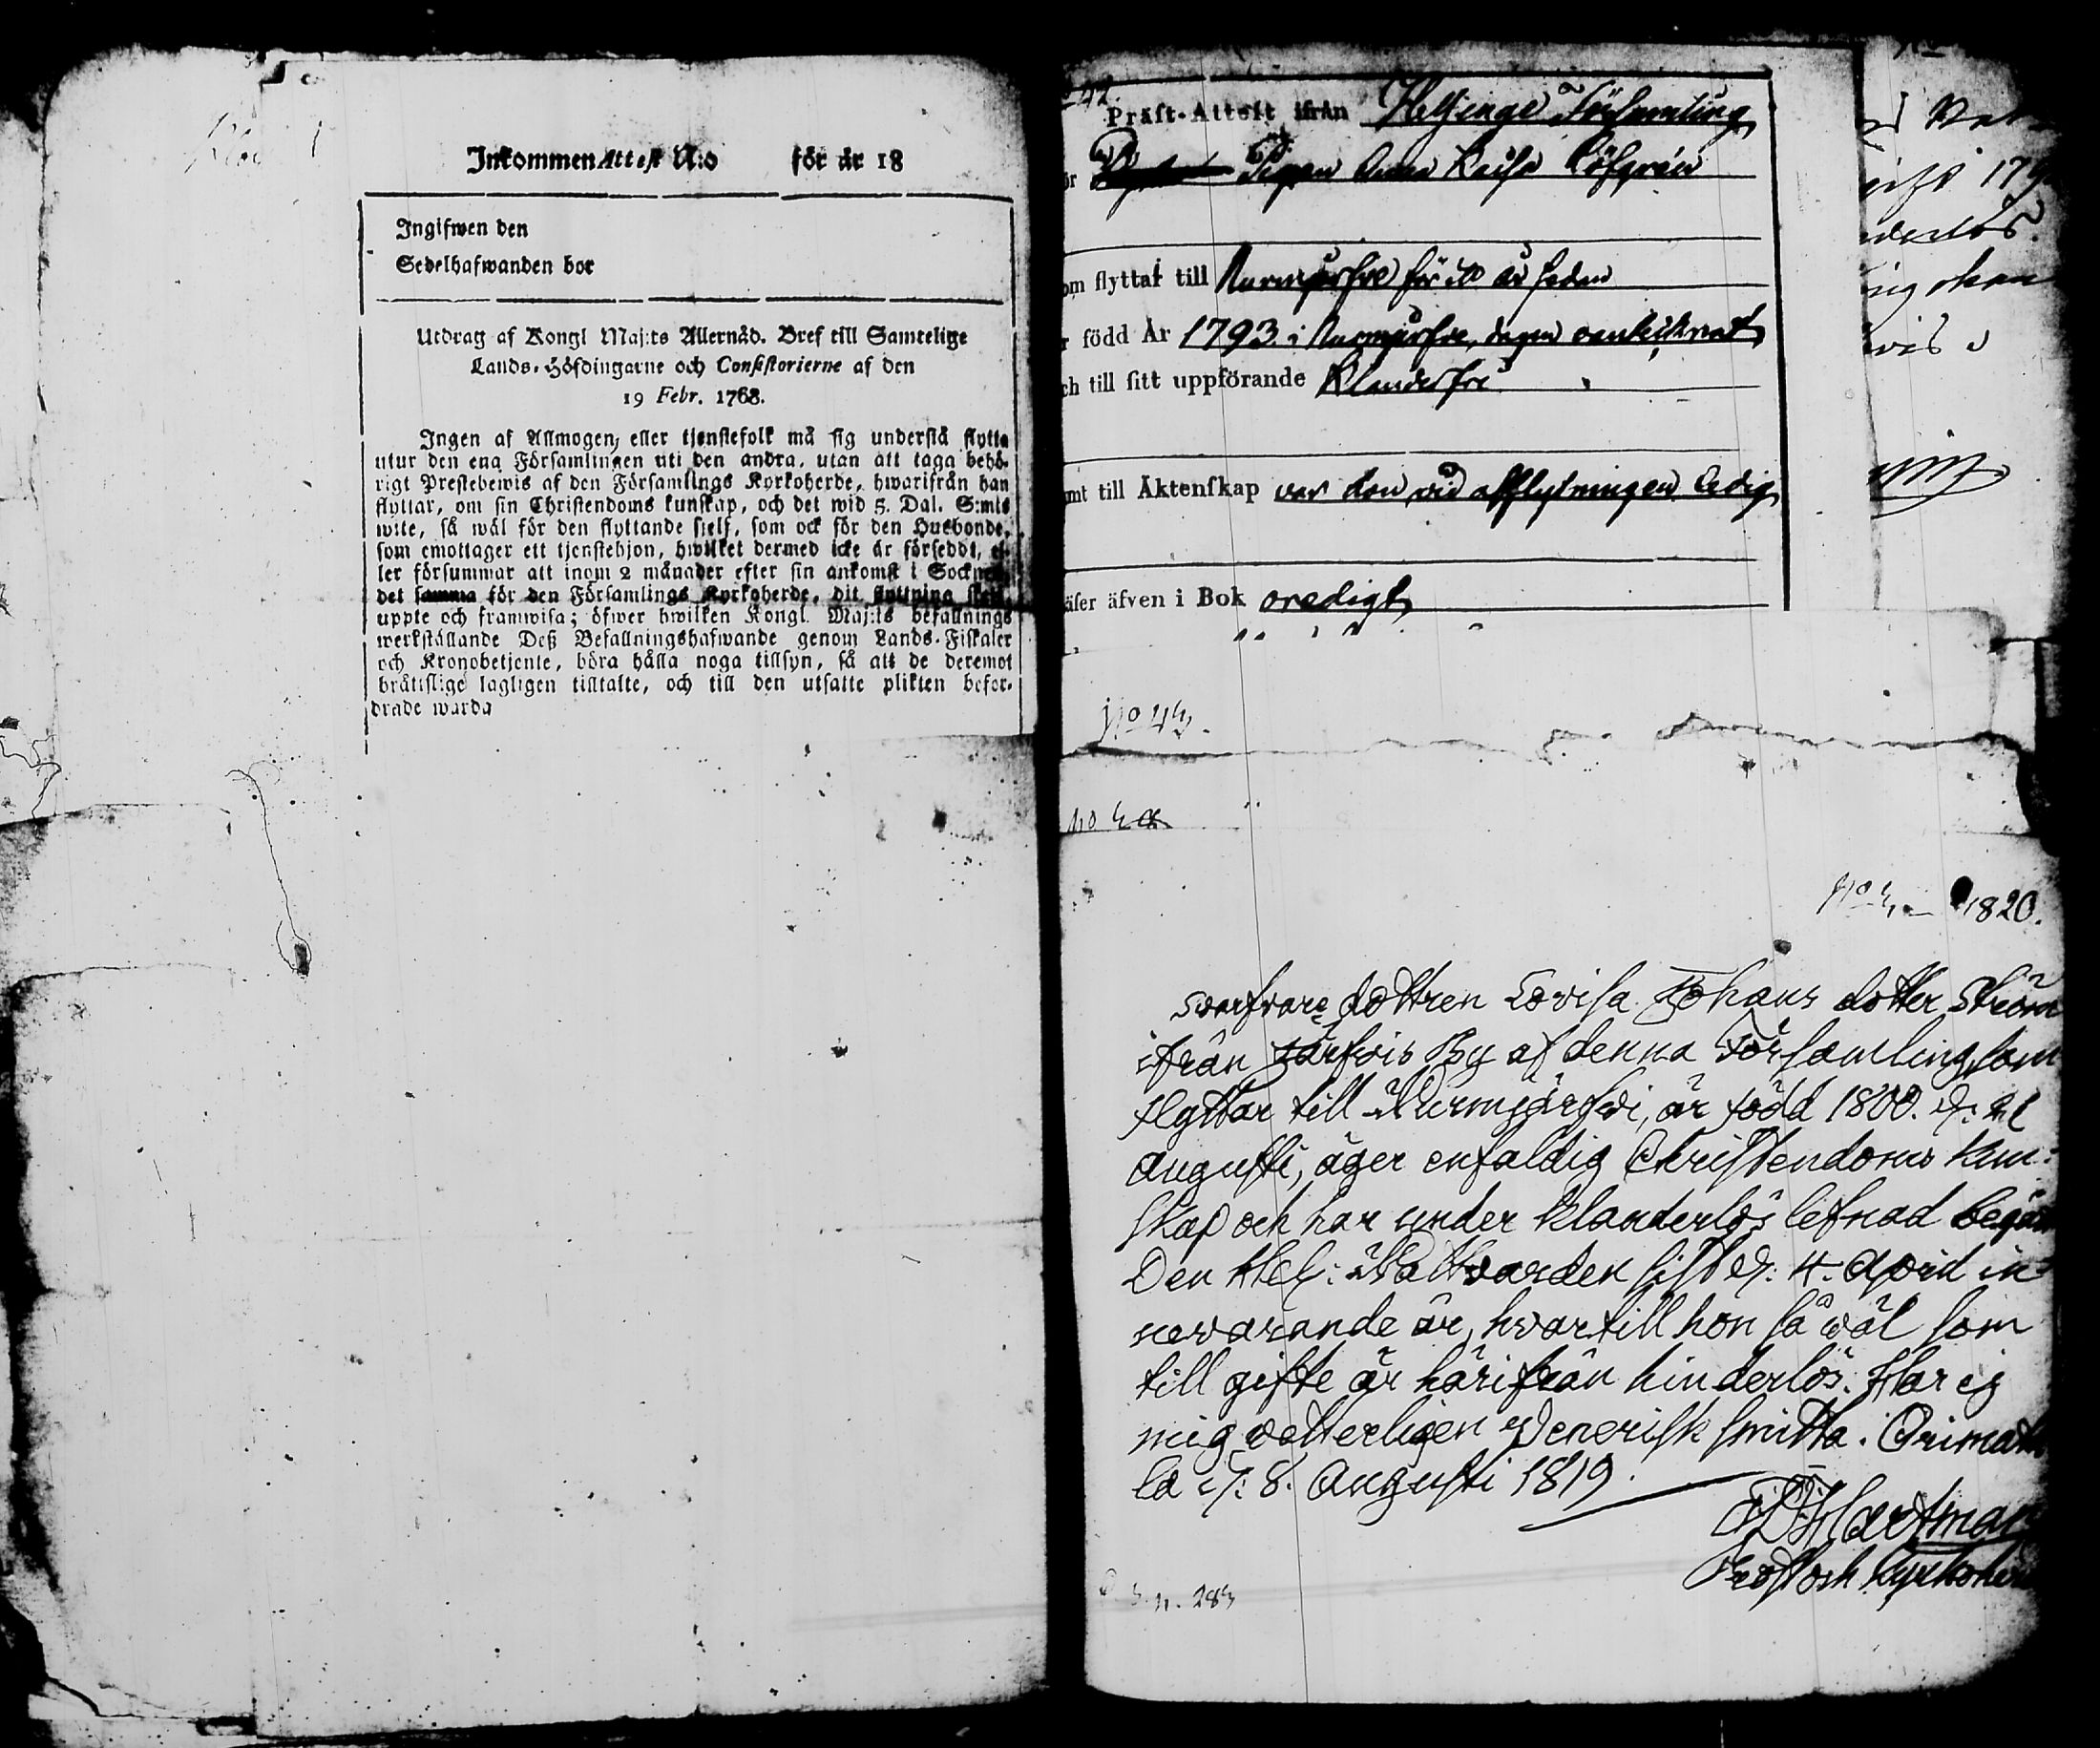 Inkommen Attest N:o för år 18
Ingifwen den
Sedelhafwanden bor
Utdrag af Kongl Maj:ts Allernåd. Bref till Samtelige
Lands-Höfdingarne och Consistorierne af den
19 Febr. 1768.
Ingen af Allmogen, eller tjenstefolk må sig understå flytta
utur den ena Församlingen uti den andra, utan att taga behö-
rigt Prestebewis af den Församlings Kyrkoherde, hwarifrån han
flyttar, om sin Christendoms kunskap, och det wid 5. Dal. S:mts
wite, så wäl för den flyttande sjelf, som ock för den Husbonde,
som emottager ett tjenstehjon, hwilket dermed icke är försedt, el-
ler försummar att inom 2 månader efter sin ankomst i Socknen
det samma för den Församlings Kyrkoherde, dit flyttning sker,
uppte och framwisa; öfwer hwilken Kongl. Maj:ts befallnings
werkställande Deß Befallningshafwande genom Lands-Fiskaler
och Kronobetjente, böra hålla noga tillsyn, så att de deremot
bråttslige lagligen tilltalte, och till den utsatte plikten befor-
drade warda
42.
Präst-Attest ifrån Helsinge Församling
ör Pigan Anna Kaisa Löfgrén
om flyttat till Nurmijerfve för ett år sedan
r född År 1793 i Nurmijerfve, dagen oantecknat
ch till sitt uppförande Klanderfri
mt till Äktenskap var hon vid afflytningen ledig
äser äfven i Bok oredigt
No 43.
No 1820.
Svarfvare dottren Lovisa Johans dotter Ström
ifrån Järfvis By af denna Församling, som
flyttar till Nurmijärfwi, är född 1800. d. 21
Augusti, äger enfaldig Christendoms kun-
skap och har under klanderlös lefnad begått
Den Hel: Nattvarden sist d: 4. April in-
nevarande år, hvartill hon så väl som
till gifte är härifrån hinderlös. Har ej
mig vetterligen Venerisk smitta. Orimatti-
la d: 8. Augusti 1819.
Hartman
Prost och Kyrkoherde